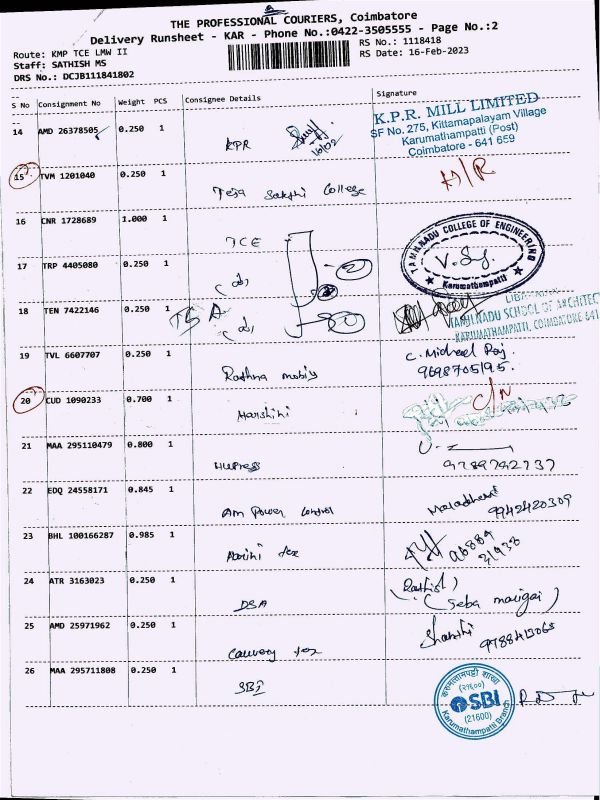 THE PROFESSIONAL COURIERS, Coimbatore
Delivery Runsheet - KAR - Phone No.:0422-3505555 - Page No.:2
Route: KMP TCE LMW II
RS No.: 1118418
Staff: SATHISH MS
RS Date: 16-Feb-2023
DRS No.: DCJB111841802
S No Consignment No Weight PCS Consignee Details Signature
14 AMD 26378505 0.250 1 KPR 16/02
K.P.R. MILL LIMITED
SF No. 275, Kittampalayam Village
Karumathampatti (Post)
Coimbatore - 641 659
15 TVM 1201040 0.250 1 Teja Sakthi College
16 CNR 1728689 1.000 1 TCE
TAMILNADU COLLEGE OF ENGINEERING
Karumathampatti
17 TRP 4405080 0.250 1
18 TEN 7422146 0.250 1 TSA
TAMILNADU SCHOOL OF ARCHITEC
KARUMATHAMPATTI, COIMBATORE 641
19 TVL 6607707 0.250 1 Rathna mobiy
C. Micheel Raj
9698705195
20 CUD 1090233 0.700 1 Harshini
21 MAA 295110479 0.800 1
9789792737
22 EDQ 24558171 0.845 1 Am Power control
9942420309
23 BHL 100166287 0.985 1 tex
24 ATR 3163023 0.250 1 DSA
(Seba maligai)
25 AMD 25971962 0.250 1 Cauvery tex
26 MAA 295711808 0.250 1 SBI
(२१६००)
SBI
(21600)
Karumathampatti Branch